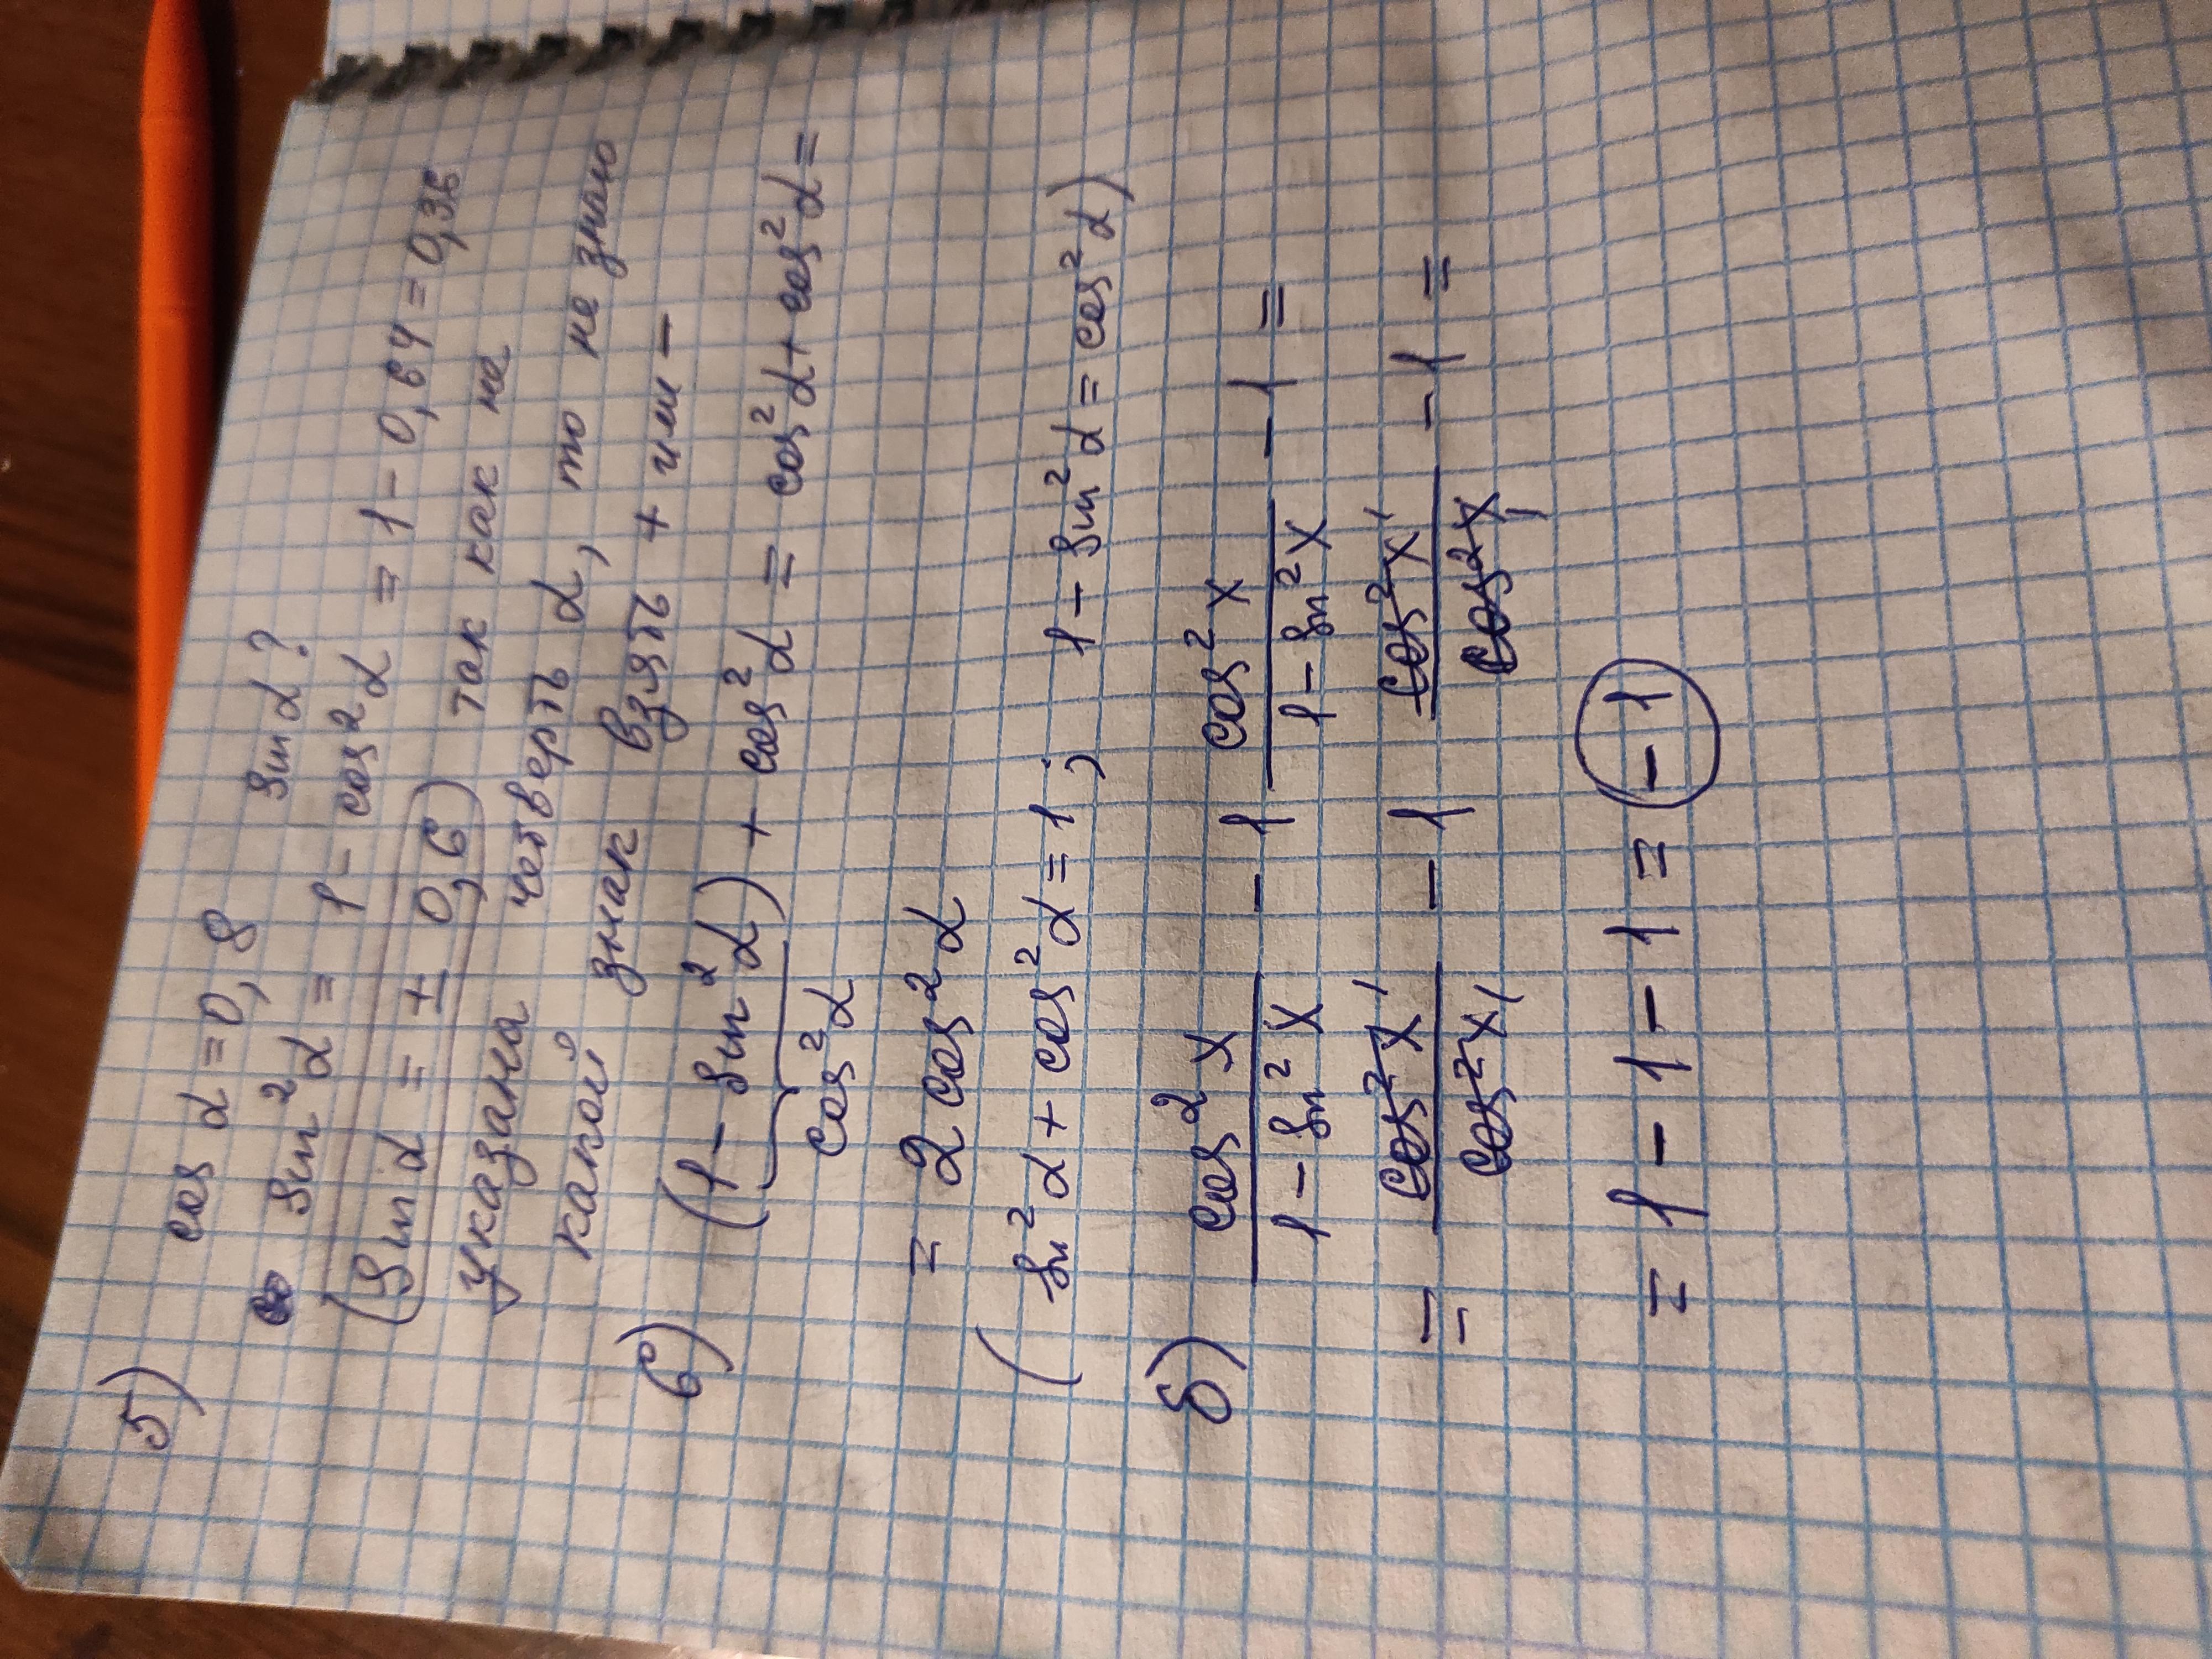 5) cos α = 0,8 sin α?
sin²α = 1 - cos²α = 1 - 0,64 = 0,36
(sin α = ± 0,6) так как не
указана четверть α, то не знаю
какой знак взять + или -
6) (1 - sin²α) + cos²α = cos²α + cos²α =
cos²α
= 2 cos²α
(sin²α + cos²α = 1; 1 - sin²α = cos²α)
б) cos²x / (1 - sin²x) - 1 cos²x / (1 - sin²x) - 1 =
= cos²x / cos²x - 1 cos²x / cos²x - 1 =
= 1 - 1 - 1 = -1